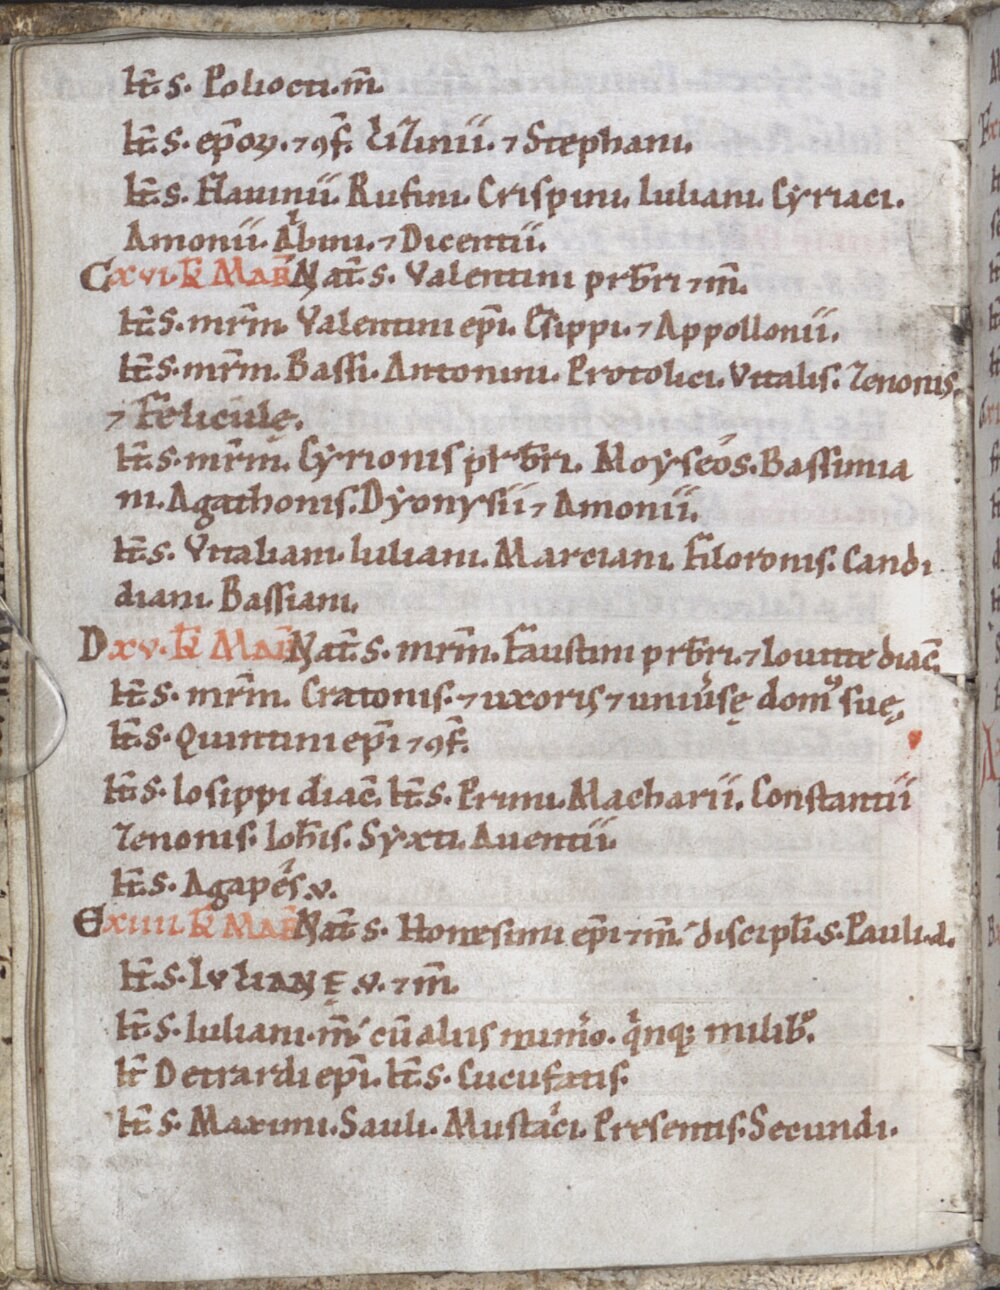 It̅. s. Poliocti. m̅.
It̅. s. ep̅oꝝ. ⁊ ꝯf̅. Lilinii. ⁊ Stephani.
It̅. s. Flauinii. Rufini. Crispini. Iuliani. Cyriaci.
Amonii. Albini. ⁊ Dicentii.
C xvi. kł Mar̅ Nat̅. s. Valentini prb̅ri ⁊ m̅.
It̅. s. mr̅m. Valentini ep̅i. Esippi. ⁊ Appollonii.
It̅. s. mr̅m. Bassi. Antonini. Protolici. Vitalis. Zenonis.
⁊ Felicule̜.
It̅. s. mr̅m. Cyrionis prb̅ri. Moyseos. Bassinia
ni. Agathonis. Dyonysii ⁊ Amonii.
It̅. s. Vitaliani. Iuliani. Marciani. Filoronis. Candi
diani. Bassiani.
D xv. kł Mar̅ Nat̅. s. mr̅m. Faustini prb̅ri. ⁊ Iouitte diac̅.
It̅. s. mr̅m. Cratonis. ⁊ uxoris ⁊ uniu͛se̜ domꝰ sue̜.
It̅. s. Quintini ep̅i ⁊ ꝯf̅.
It̅. s. Iosippi diac̅. It̅. s. Primi. Macharii. Constantii
Zenonis. Ioh̅is. Syxti. Auentii.
It̅. s. Agapes. v.
E xiiii. kł Mar̅ Nat̅ s. Honesimi ep̅i ⁊ m̅. discipl̅i. s. Pauli. a.
It̅. s. IVLIANE̜. v. ⁊ m̅.
It̅. s. Iuliani. m̅. cu̅ aliis num͛o. qͥnqꝫ milibꝰ.
It̅ Detrardi ep̅i. It̅. s. Cucufatis.
It̅. s. Maximi. Sauli. Mustaci. Presentis. Secundi.